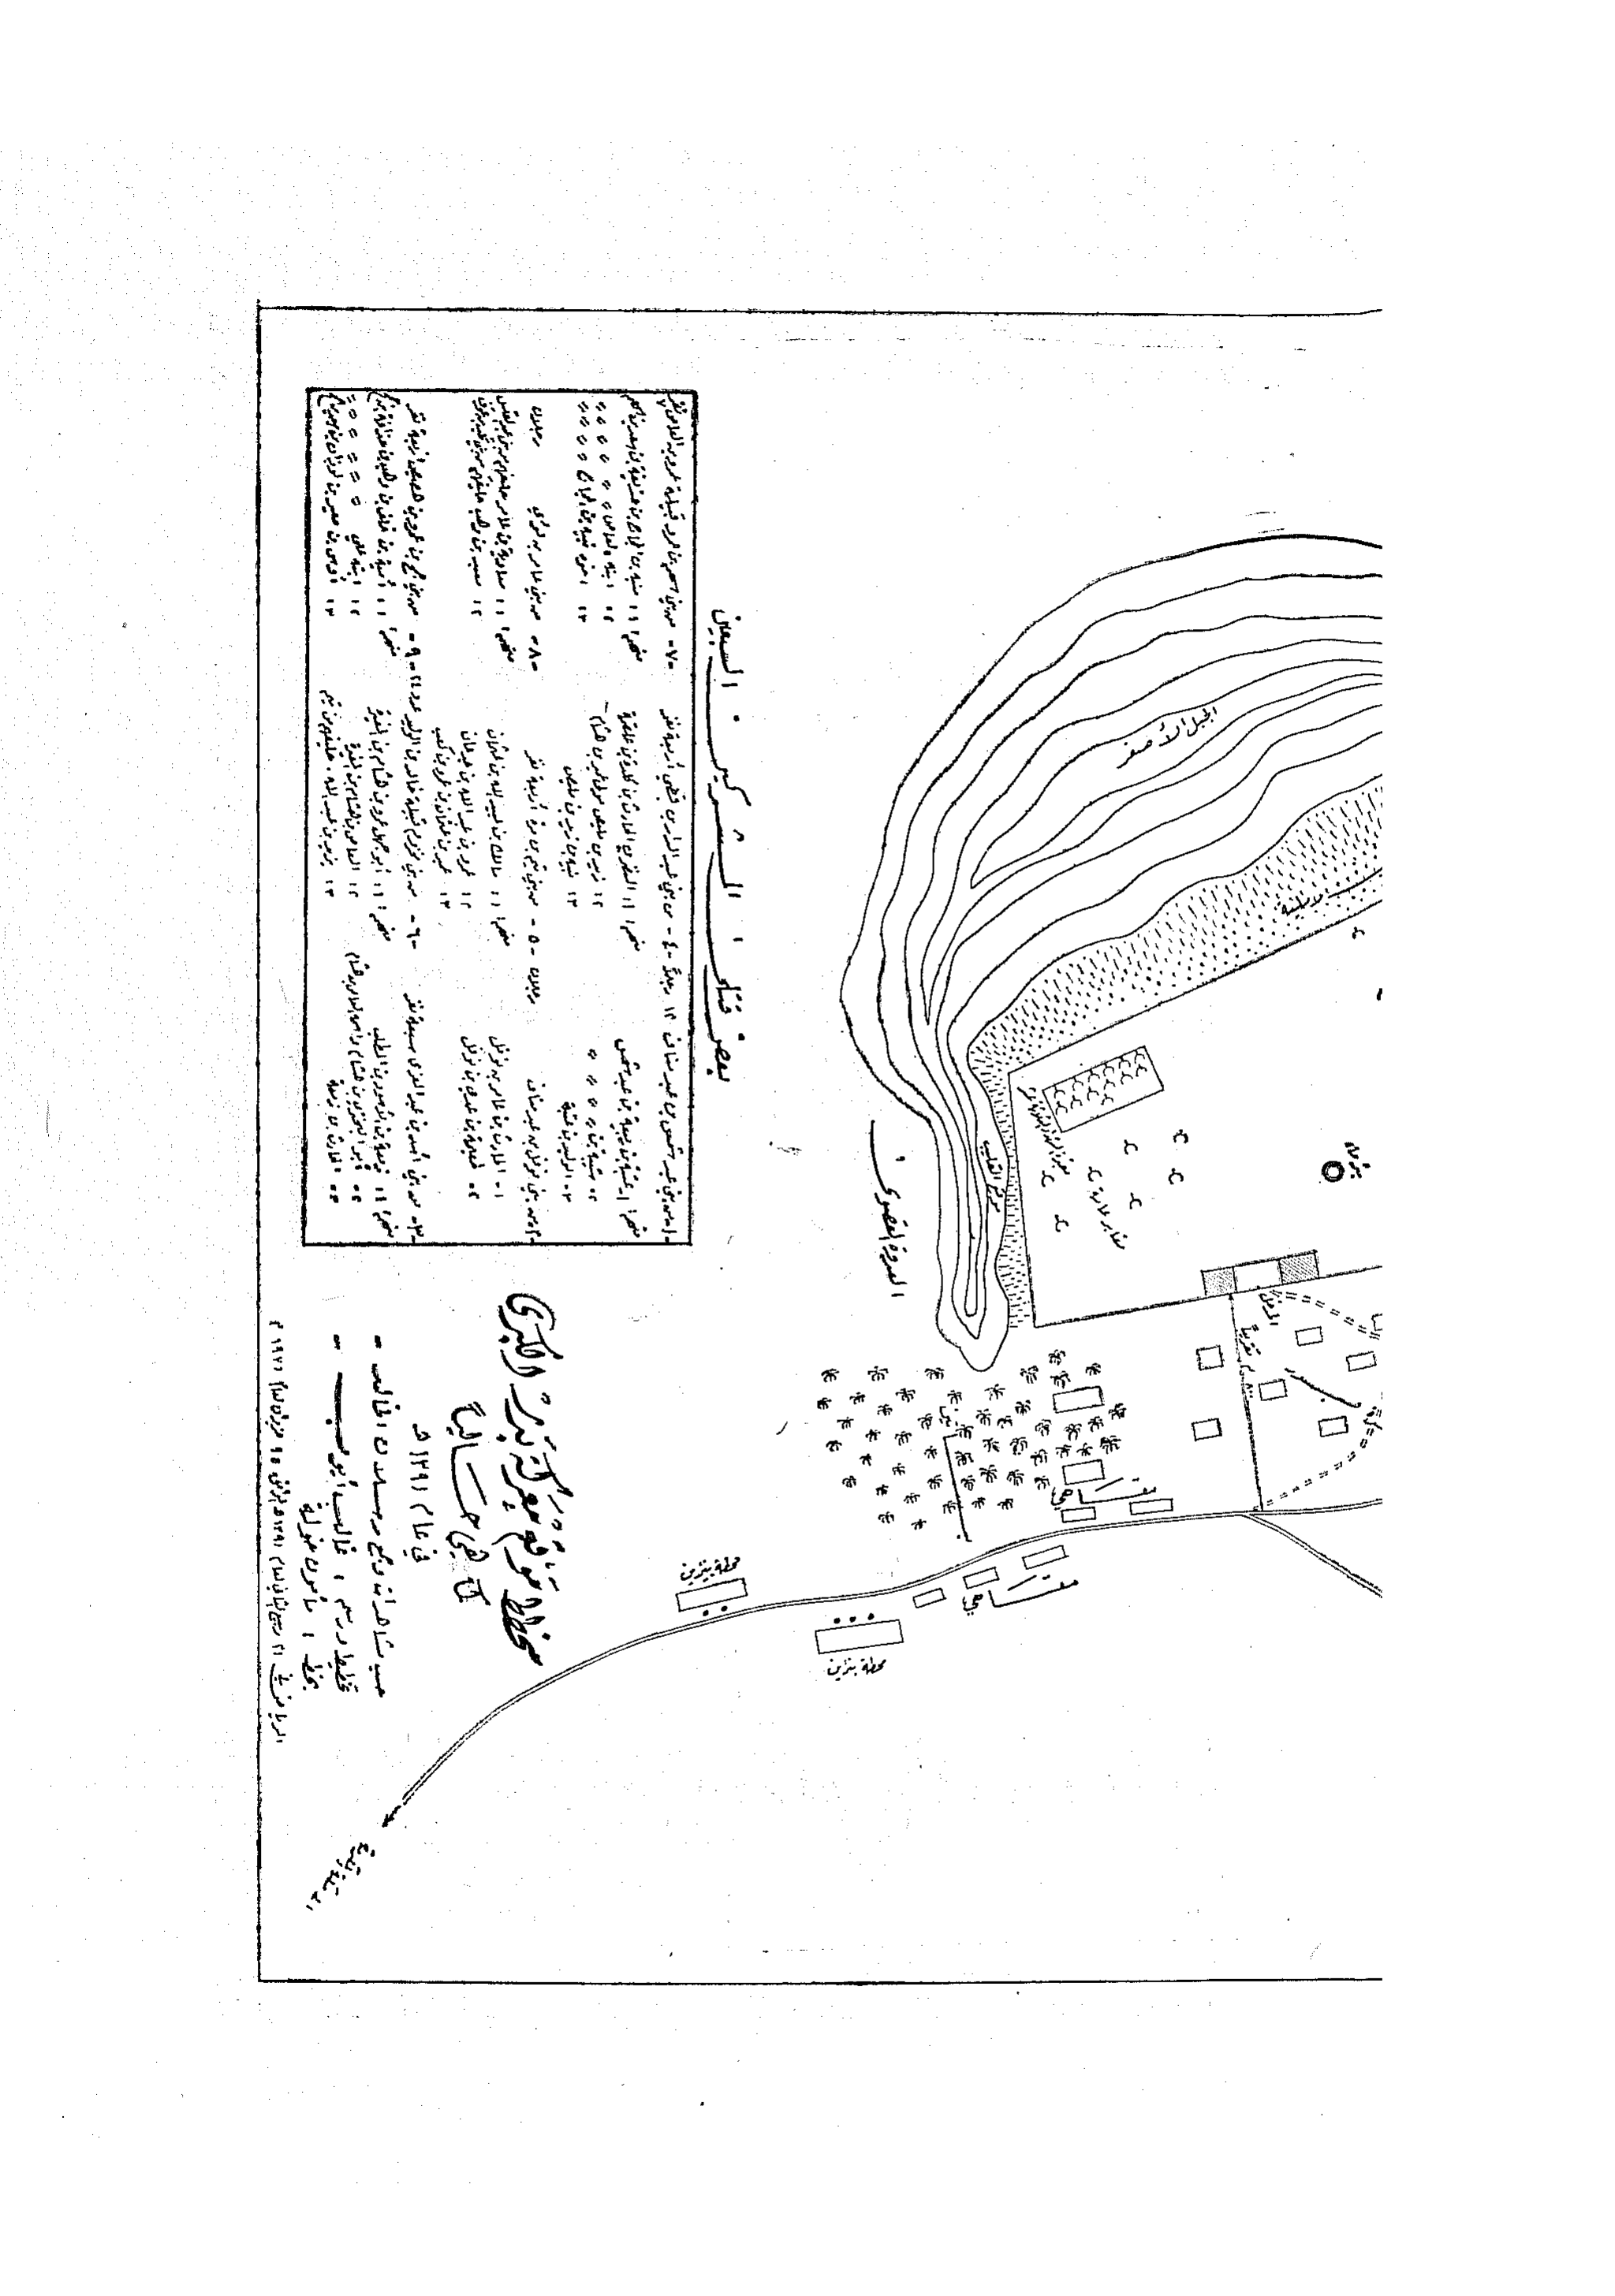 بعض قتلى المشركين السبعين
١- من بني عبد شمس بن عبد مناف ١٢ رجلاً
منهم : ١ عتبة بن ربيعة بن عبد شمس
٢- شيبة بن " " "
٣- الوليد بن عتبة
٢- من بني نوفل بن عبد مناف رجلان
١- الحارث بن عامر بن نوفل
٢- طعيمة بن عدي بن نوفل
٣- من بني أسد بن عبد العزى سبعة نفر
منهم : ١- زمعة بن الأسود بن المطلب
٢- أبو البختري بن هشام
٣- الحارث بن زمعة
٤- من بني عبد الدار بن قصي أربعة نفر
منهم : ١- النضر بن الحارث بن كلدة بن علقمة
٢- زيد بن مليص مولى عمير بن هشام
٣- نبيه بن زيد بن مليص
٥- من بني تيم بن مرة أربعة نفر
منهم : ١- مالك بن عبيد الله بن عثمان
٢- عمرو بن عبد الله بن جدعان
٣- عمير بن عثمان بن عمرو بن كعب
٦- من بني مخزوم قبيلة خالد بن الوليد عدد ٢٤
منهم : ١- أبو جهل عمرو بن هشام بن المغيرة
٢- العاص بن هشام بن المغيرة
٣- يزيد بن عبد الله . حليفهم من تميم
٧- من بني سهم بن عمرو قبيلة عمرو بن العاص
منهم : ١- منبه بن الحجاج بن حذيفة بن سعد بن سهم
٢- ابنه العاص " " "
٣- أخوه نبيه بن الحجاج " " "
٨- من بني عامر بن لؤي رجلان
منهم : ١- معاوية بن عامر حليفهم من عبد القيس
٢- معبد بن وهب حليفهم من بني كلب بن عوف
٩- من بني جمح بن عمرو بن هصيص أربعة نفر
منهم : ١- أمية بن خلف بن وهب بن حذافة بن جمح
٢- ابنه علي " " " "
٣- أوس بن معير بن لوذان بن سعد بن جمح
الجبل الأصفر
رملية
العدوة القصوى
مقابر عادية
المدخل
مساحي
مساحي
محطة بنزين
محطة بنزين
إلى ينبع
مخطط موقع معركة بدر الكبرى
كما هي حالياً
في عام ١٣٩١ هـ
تخطيط ورسم : غالب أبو
بخط : مأمون
الرياض في ٢١ ربيع الثاني لعام ١٣٩١ هـ الموافق ١٥ حزيران لعام ١٩٧١ م